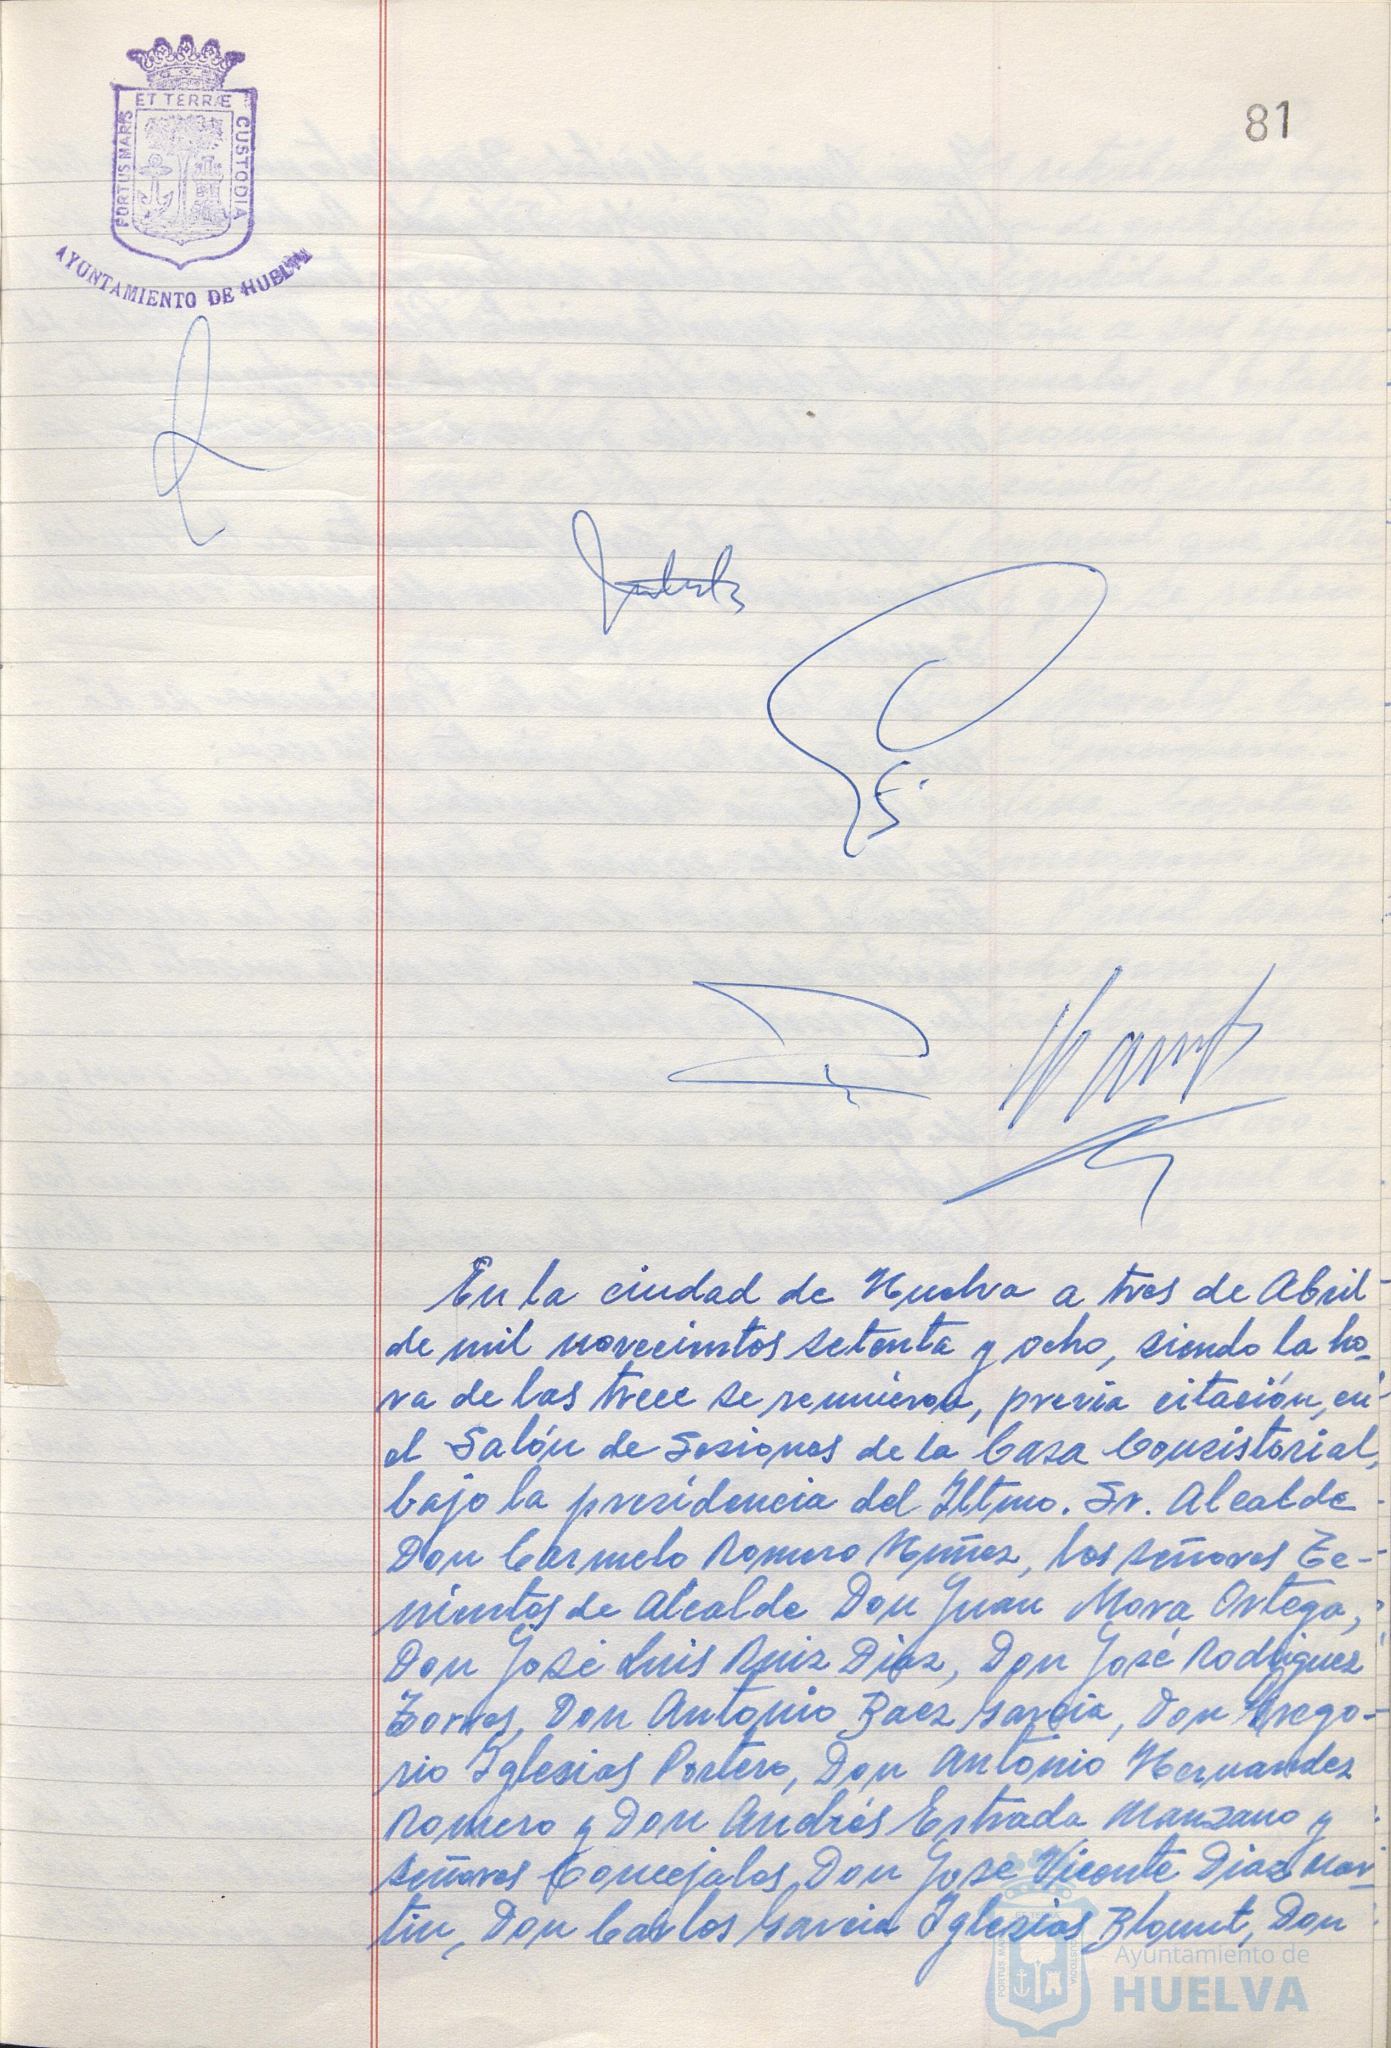 ET TERRÆ
PORTUS MARIS
CUSTODIA
AYUNTAMIENTO DE HUELVA
81
En la ciudad de Huelva a tres de Abril
de mil novecientos setenta y ocho, siendo la ho-
ra de las trece se reunieron, previa citación, en
el Salón de Sesiones de la Casa Consistorial,
bajo la presidencia del Iltmo. Sr. Alcalde
Don Carmelo Romero Nuñez, los señores Te-
nientes de Alcalde Don Juan Mora Ortega,
Don José Luis Ruiz Diaz, Don José Rodriguez
Torres, Don Antonio Baez Garcia, Don Grego-
rio Iglesias Portero, Don Antonio Hernandez
Romero y Don Andrés Estrada Manzano y
señores Concejales Don José Vicente Diaz Mar-
tin, Don Carlos Garcia Iglesias Blount, Don
Ayuntamiento de
HUELVA